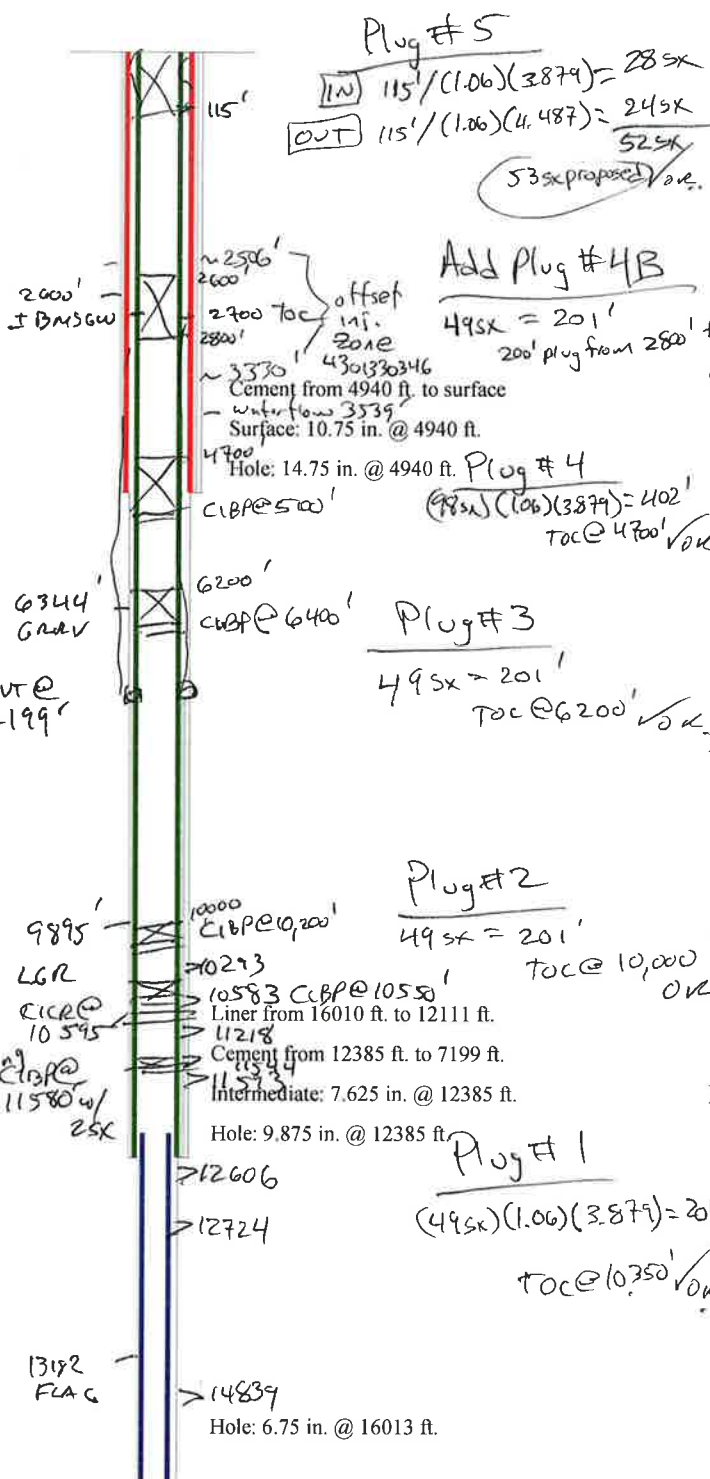 Plug # 5
IN 115'/(1.06)(3.879)= 28sx
OUT 115'/(1.06)(4.487)= 24sx
52sx
53sx proposed ✓ OK.
115'
~2506'
2600'
2600'
IBMSGW
2700 TOC
2800'
offset
inj.
zone
4301330346
Add Plug #4B
49sx = 201'
200' plug from 2800'
~3330'
Cement from 4940 ft. to surface
waterflow 3539'
Surface: 10.75 in. @ 4940 ft.
4700'
Hole: 14.75 in. @ 4940 ft.
Plug # 4
(98sx)(1.06)(3.879)=402'
TOC @ 4700' ✓ OK
CIBP@5100'
6200'
6344'
GRRV
CIBP@6400'
Plug #3
49sx = 201'
TOC @6200' ✓ OK
@
199'
Plug #2
49sx = 201'
TOC @ 10,000
OK
10000
9895'
CIBP@10,200'
LGR
10293
10583 CIBP@10550'
CICR@
10595
Liner from 16010 ft. to 12111 ft.
11218
Cement from 12385 ft. to 7199 ft.
11544
11573
CIBP@
11580' w/
2SX
Intermediate: 7.625 in. @ 12385 ft.
Hole: 9.875 in. @ 12385 ft.
Plug # 1
(49sx)(1.06)(3.879)=20
TOC @10350' ✓ OK
12606
12724
13192
FLAG
14839
Hole: 6.75 in. @ 16013 ft.